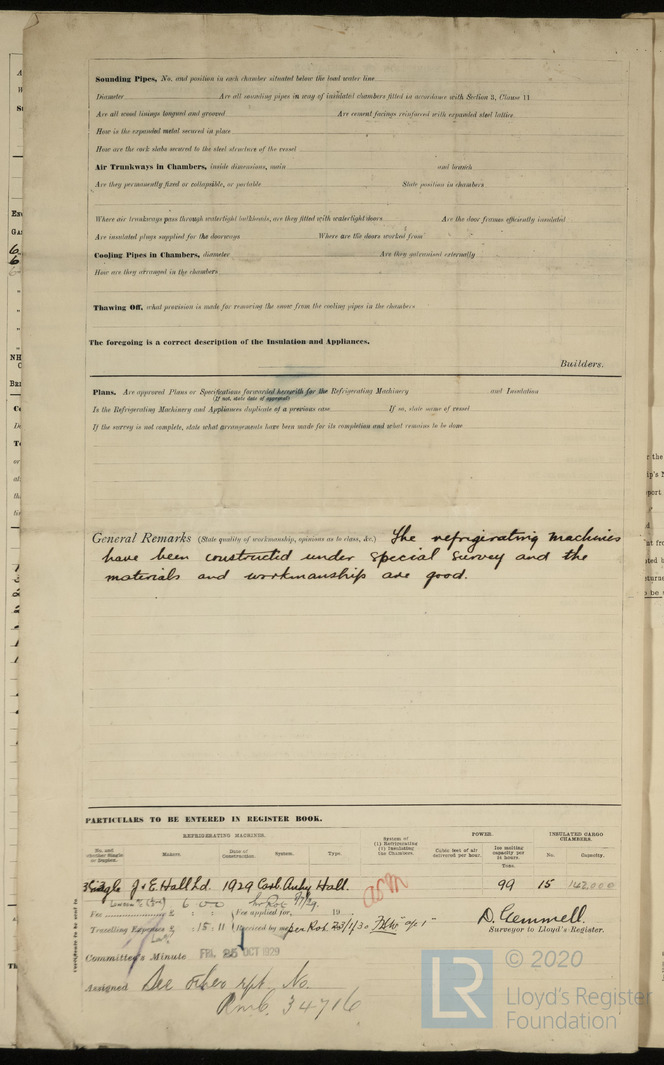 Sounding Pipes, No. and position in each chamber situated below the load water line
Diameter Are all sounding pipes in way of insulated chambers fitted in accordance with Section 3, Clause 11
Are all wood linings tongued and grooved Are cement facings reinforced with expanded steel lattice
How is the expanded metal secured in place
How are the cork slabs secured to the steel structure of the vessel
Air Trunkways in Chambers, inside dimensions, main and branch
Are they permanently fixed or collapsible, or portable State position in chambers
Where air trunkways pass through watertight bulkheads, are they fitted with watertight doors Are the door frames efficiently insulated
Are insulated plugs supplied for the doorways Where are the doors worked from
Cooling Pipes in Chambers, diameter Are they galvanised externally
How are they arranged in the chambers
Thawing Off, what provision is made for removing the snow from the cooling pipes in the chambers
The foregoing is a correct description of the Insulation and Appliances.
Builders.
Plans. Are approved Plans or Specifications forwarded herewith for the Refrigerating Machinery and Insulation
(If not, state date of approval)
Is the Refrigerating Machinery and Appliances duplicate of a previous case If so, state name of vessel
If the survey is not complete, state what arrangements have been made for its completion and what remains to be done
General Remarks (State quality of workmanship, opinions as to class, &c.) The refrigerating machines
have been constructed under special survey and the
materials and workmanship are good.
PARTICULARS TO BE ENTERED IN REGISTER BOOK.
REFRIGERATING MACHINES. System of (1) Refrigerating (2) Insulating the Chambers. POWER. INSULATED CARGO CHAMBERS.
No. and whether Single or Duplex. Makers. Date of Construction. System. Type. Cubic feet of air delivered per hour. Ice melting capacity per 24 hours. Tons. No. Capacity.
3 Single J & E. Hall Ld. 1929 Carb. Anhy Hall. 99 15 142,000
Fee £ 6 0 0 Fee applied for, 19
Travelling Expenses £ : 15 : 11 Received by me, per Rot 23/1/30
D. Gemmell.
Surveyor to Lloyd's Register.
Committee's Minute FRI. 25 OCT 1929
Assigned See other rpt. No.
34716
LR © 2020
Lloyd's Register
Foundation